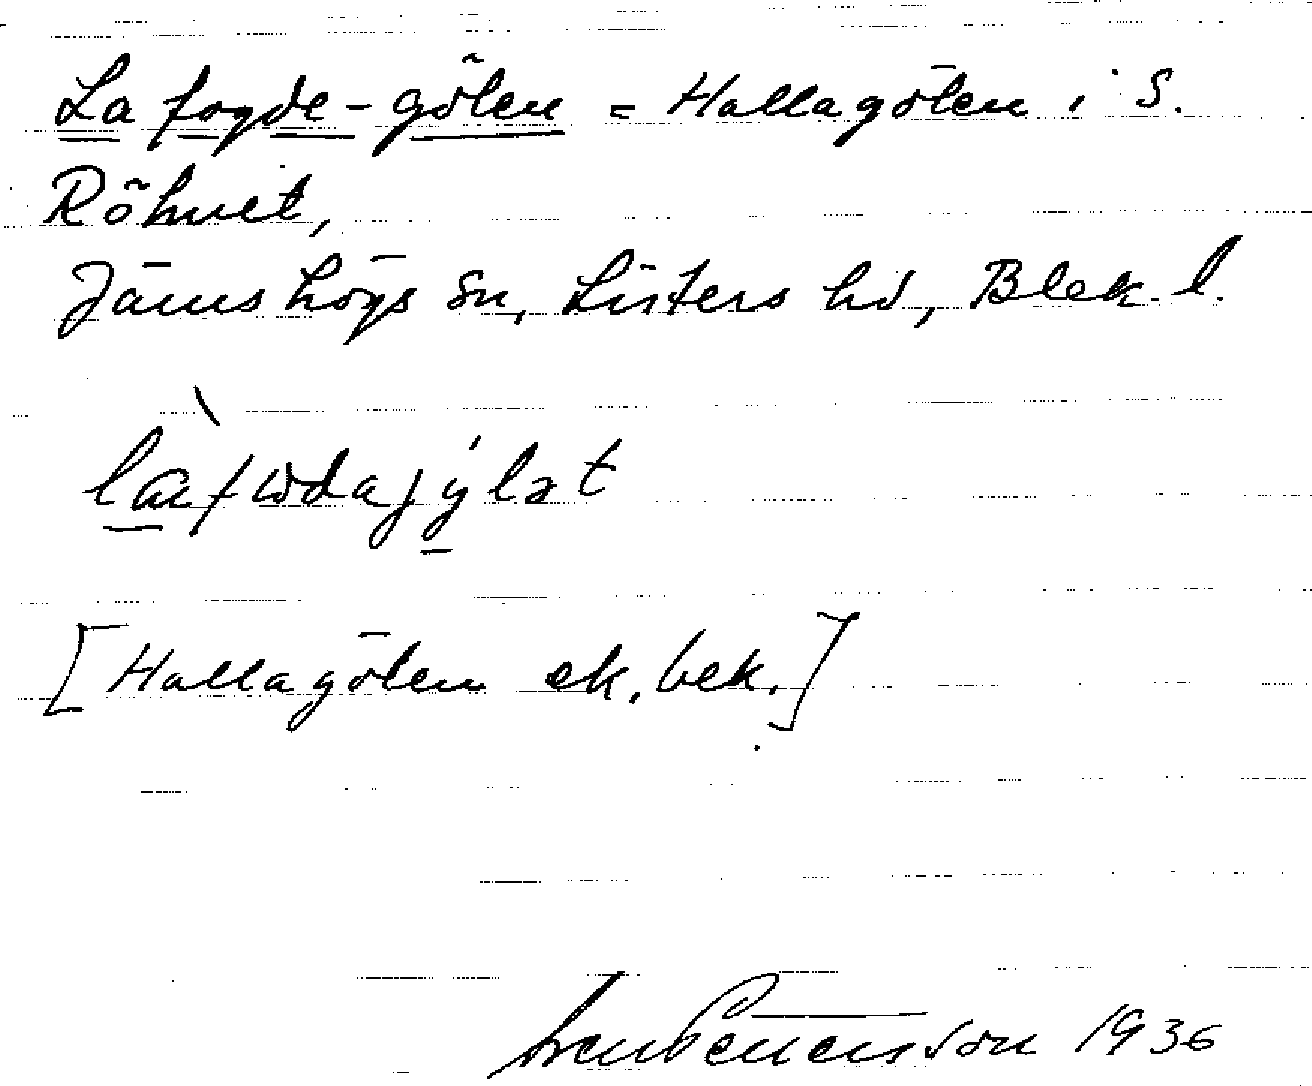 La fogde-gölen = Hallagölen i S.
Röhult,
Jämshögs sn, Listers hd, Blek. l.
[Hallagölen ek. bek.]
1936